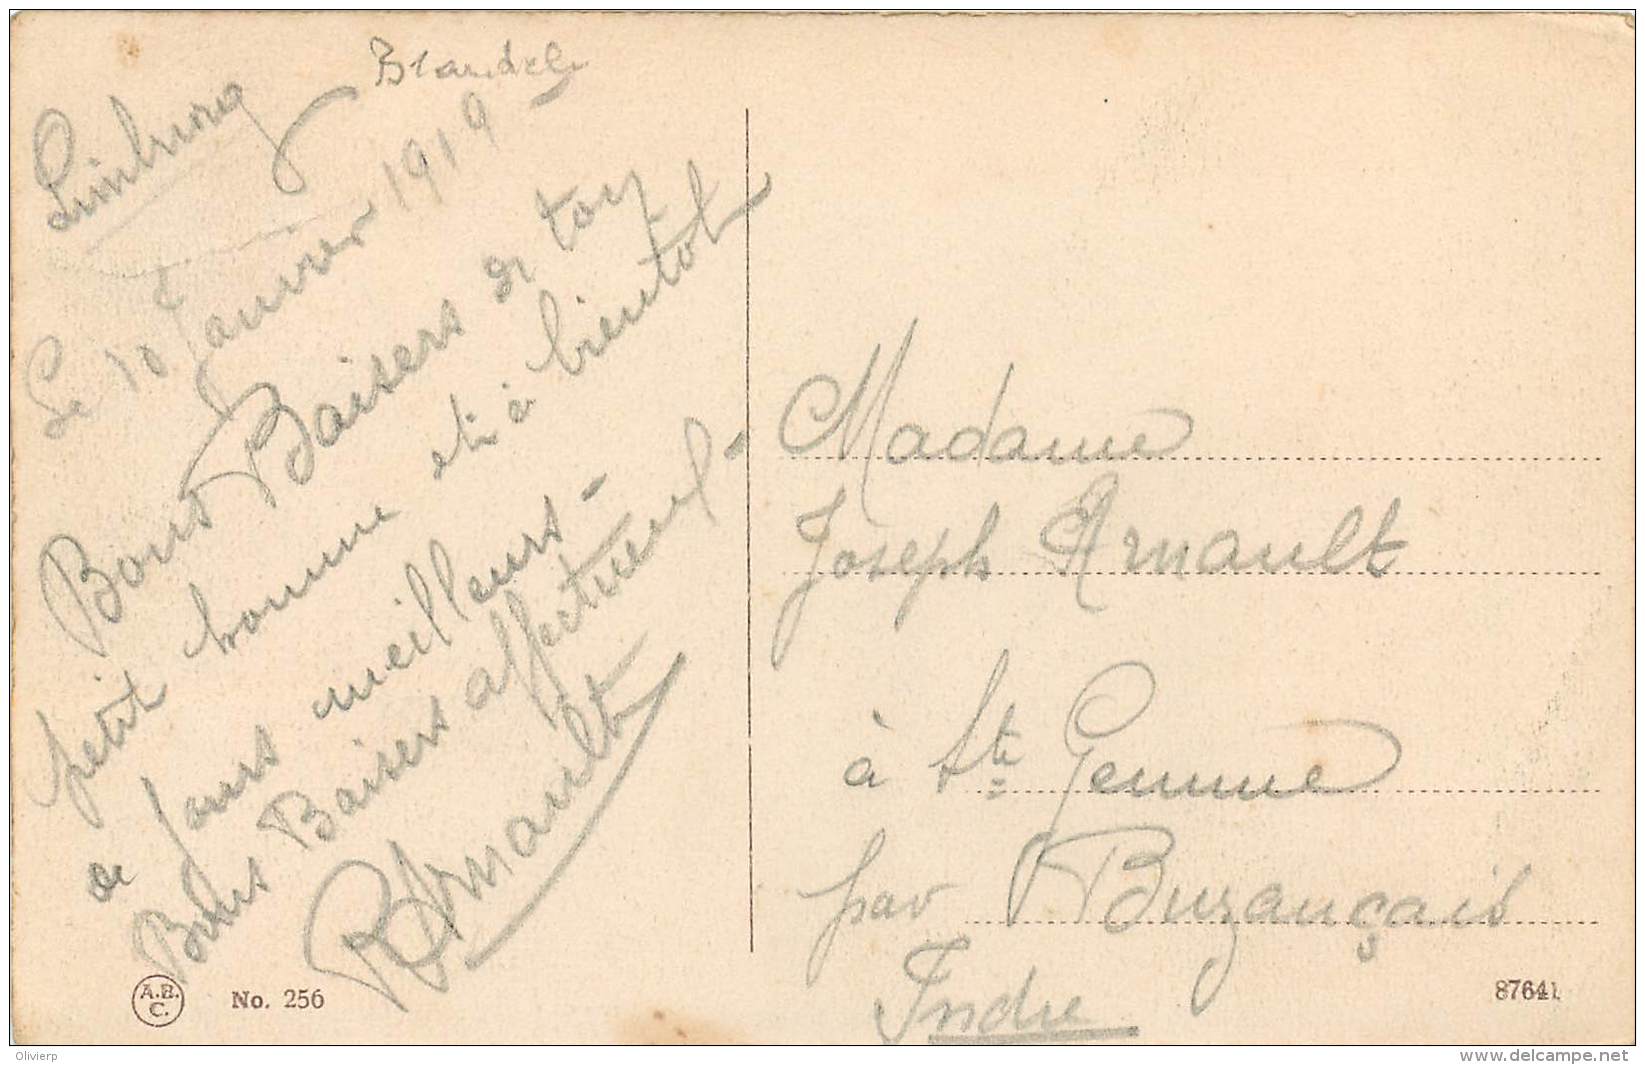 Limburg
Le 10 Janvier 1919
Bons Baisers de ton
petit homme et à bientot
de jours meilleurs -
Bons Baisers affectueux -
R Arnault
Madame
Joseph Arnault
à Ste Gemme
par Buzançais
Indre
A.B.
C.
No. 256
87641
Olivierp
www.delcampe.net